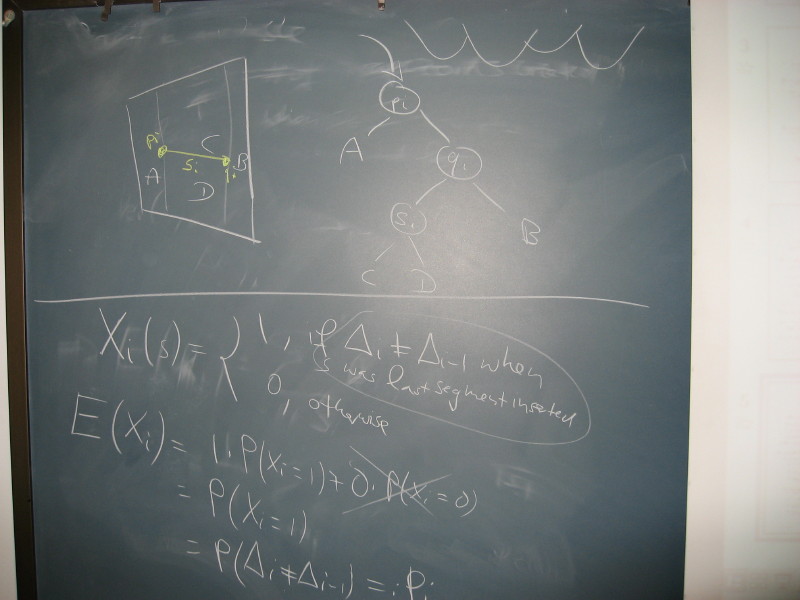 pi
C
B
si
A
D
pi
A
qi
si
B
C D
Xi(s) = { 1, if Δi ≠ Δi-1 when
s was last segment inserted
0, otherwise
E(Xi) = 1·P(Xi=1) + 0·P(Xi=0)
= P(Xi=1)
= P(Δi≠Δi-1) =: Pi